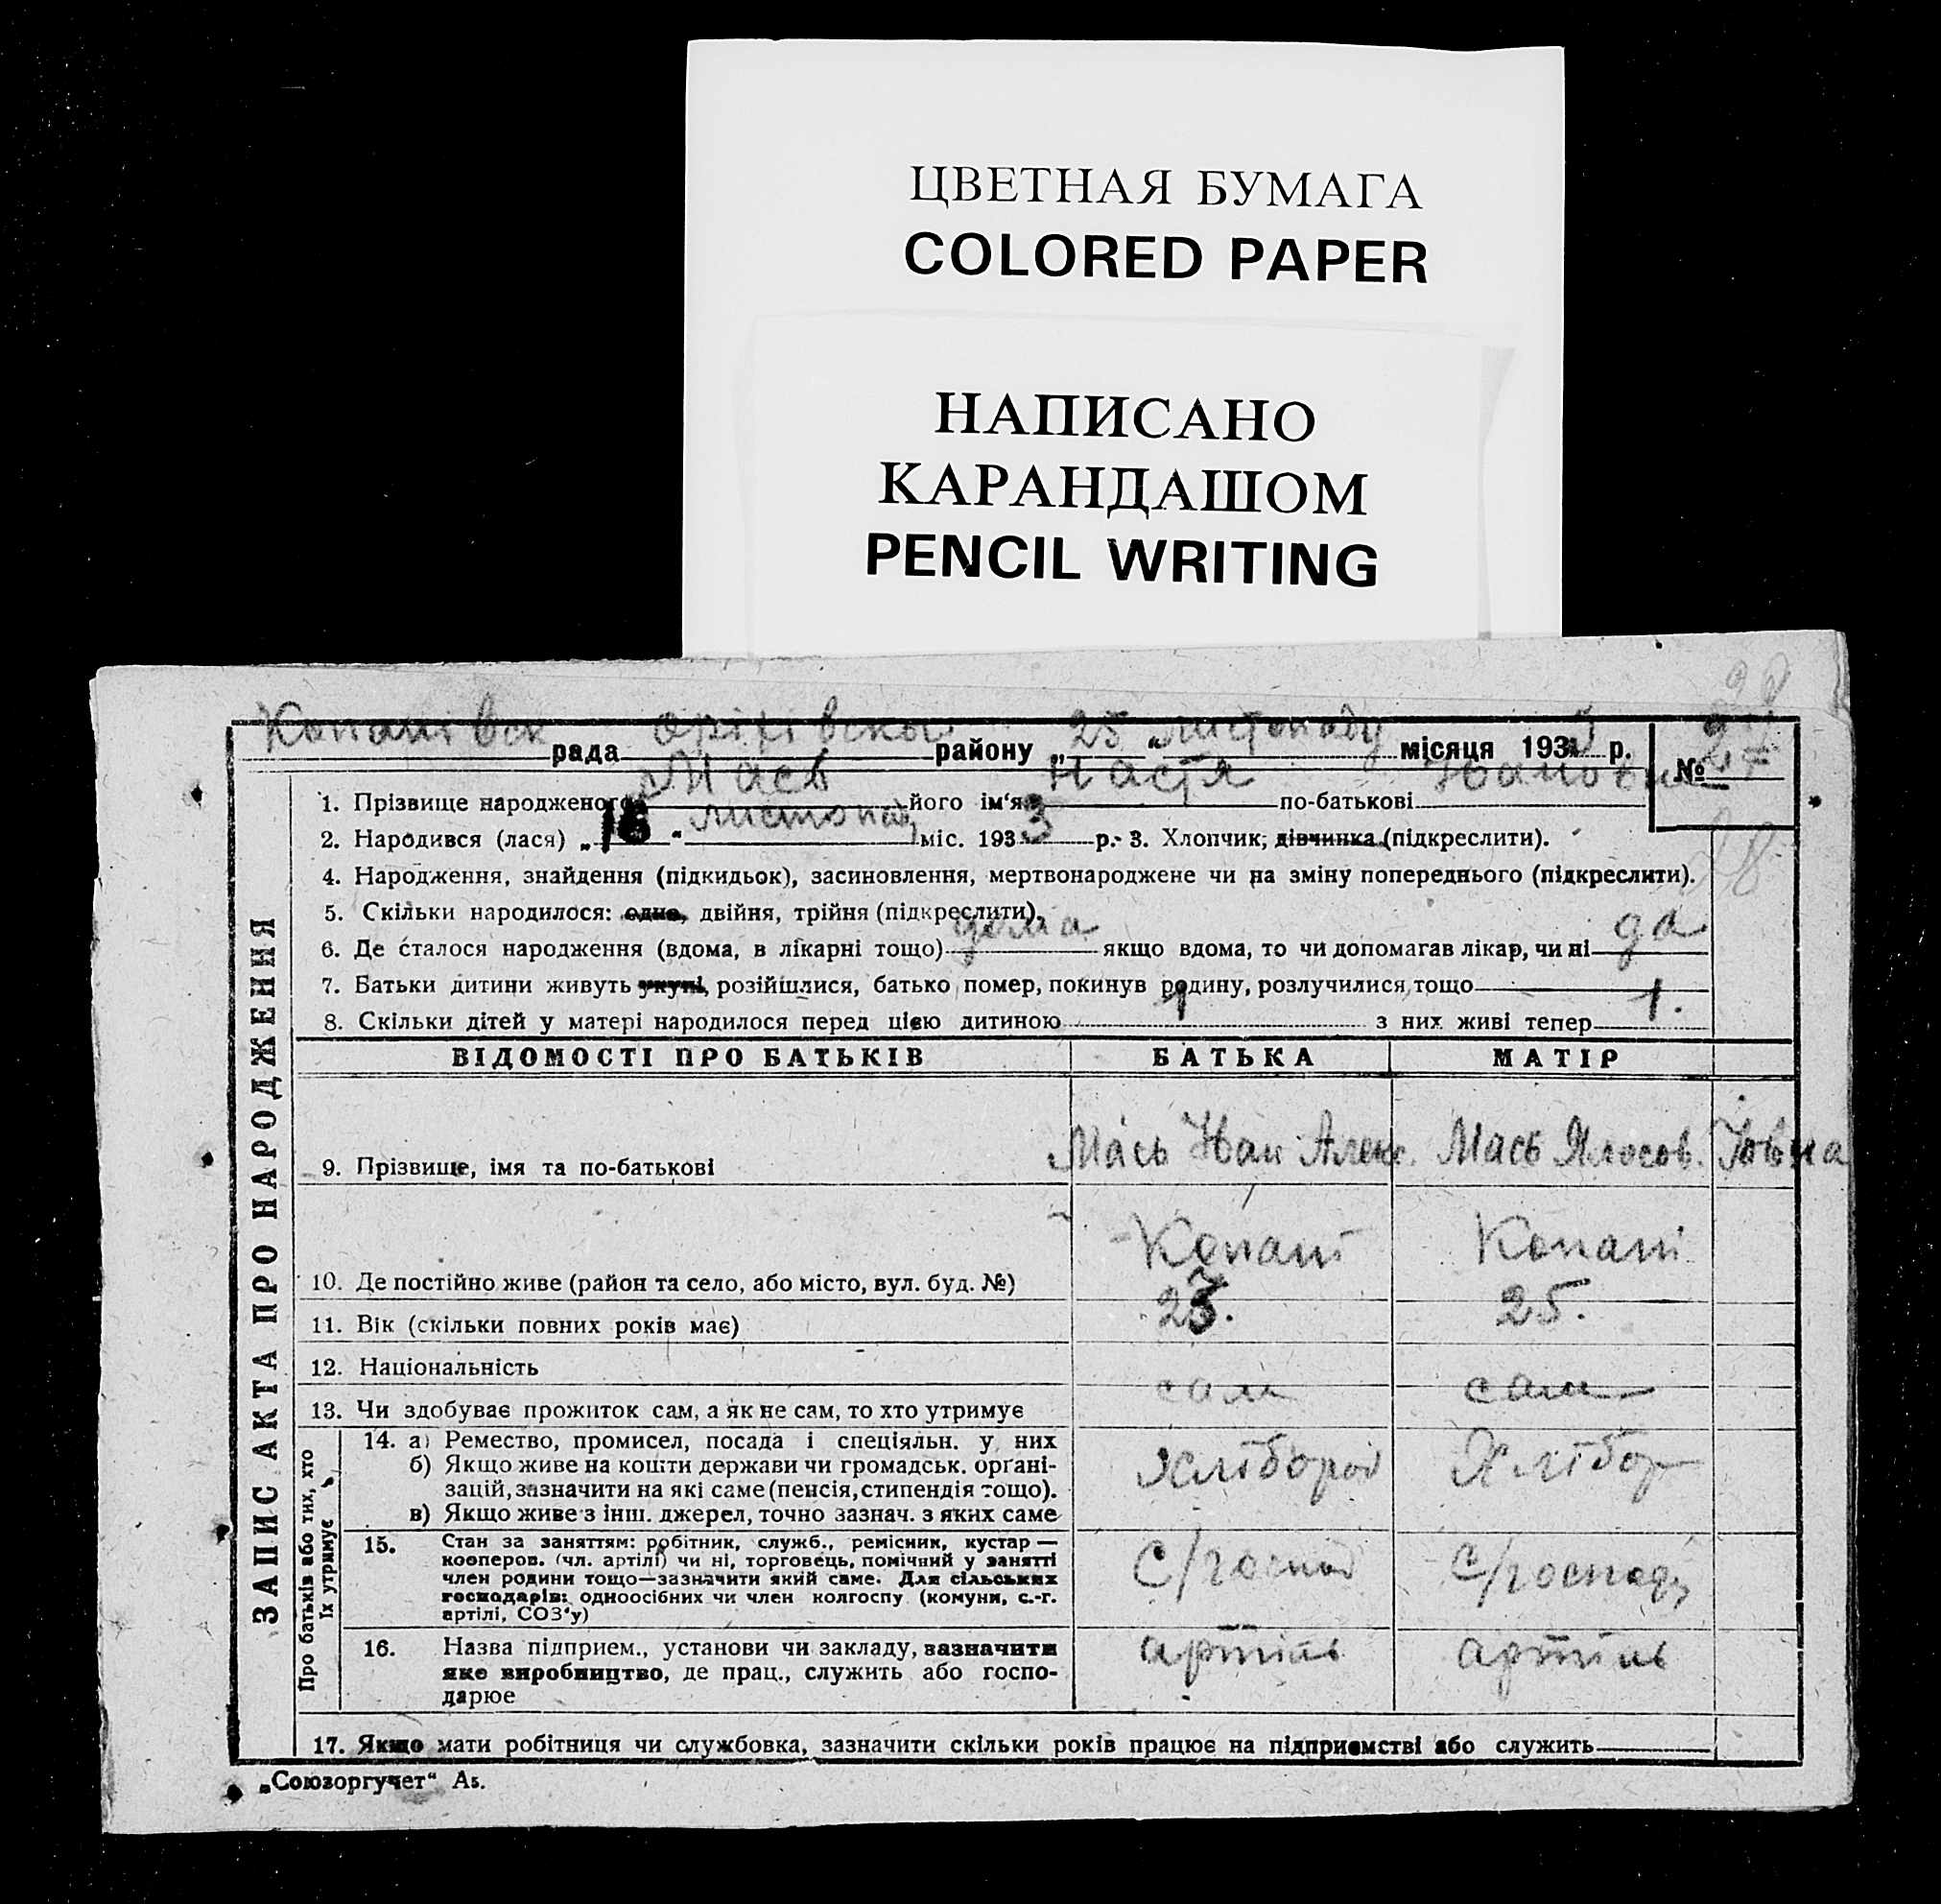 ЦВЕТНАЯ БУМАГА
COLORED PAPER
НАПИСАНО
КАРАНДАШОМ
PENCIL WRITING
Копанівск рада оріхівськ району „25“ листопаду місяця 1933 р.
№ 27
ЗАПИС АКТА ПРО НАРОДЖЕННЯ
1. Прізвище народженого Мась його ім‘я Настя по-батькові Івановн
2. Народився (лася) „ “ листопад міс. 1933 р. 3. Хлопчик, дівчинка (підкреслити).
4. Народження, знайдення (підкидьок), засиновлення, мертвонароджене чи на зміну попереднього (підкреслити).
5. Скільки народилося: одно, двійня, трійня (підкреслити).
6. Де сталося народження (вдома, в лікарні тощо) дома якщо вдома, то чи допомагав лікар, чи ні да
7. Батьки дитини живуть укупі, розійшлися, батько помер, покинув родину, розлучилися тощо
8. Скільки дітей у матері народилося перед цією дитиною 1 з них живі тепер 1.
ВІДОМОСТІ ПРО БАТЬКІВ БАТЬКА МАТІР
9. Прізвище, імя та по-батькові Мась Иван Алекс. Мась
10. Де постійно живе (район та село, або місто, вул. буд. №) Копані Копані
11. Вік (скільки повних років має) 27. 25.
12. Національність
13. Чи здобуває прожиток сам, а як не сам, то хто утримує сам сама
Про батьків або тих, хто їх утримує
14. а) Ремество, промисел, посада і спеціяльн. у них Хлібороб Хлібор
б) Якщо живе на кошти держави чи громадськ. органі-
зацій, зазначити на які саме (пенсія, стипендія тощо).
в) Якщо живе з інш. джерел, точно зазнач. з яких саме
15. Стан за заняттям: робітник, служб., ремісник, кустар —
кооперов. (чл. артілі) чи ні, торговець, помічний у занятті
член родини тощо—зазначити який саме. Для сільських
господарів: одноосібних чи член колгоспу (комуни, с.-г.
артілі, СОЗ‘у)
С/господ С/господ
16. Назва підприєм., установи чи закладу, зазначити
яке виробництво, де прац., служить або госпо-
дарює
артіль артіль
17. Якщо мати робітниця чи службовка, зазначити скільки років працює на підприємстві або служить
„Союзоргучет“ А5.